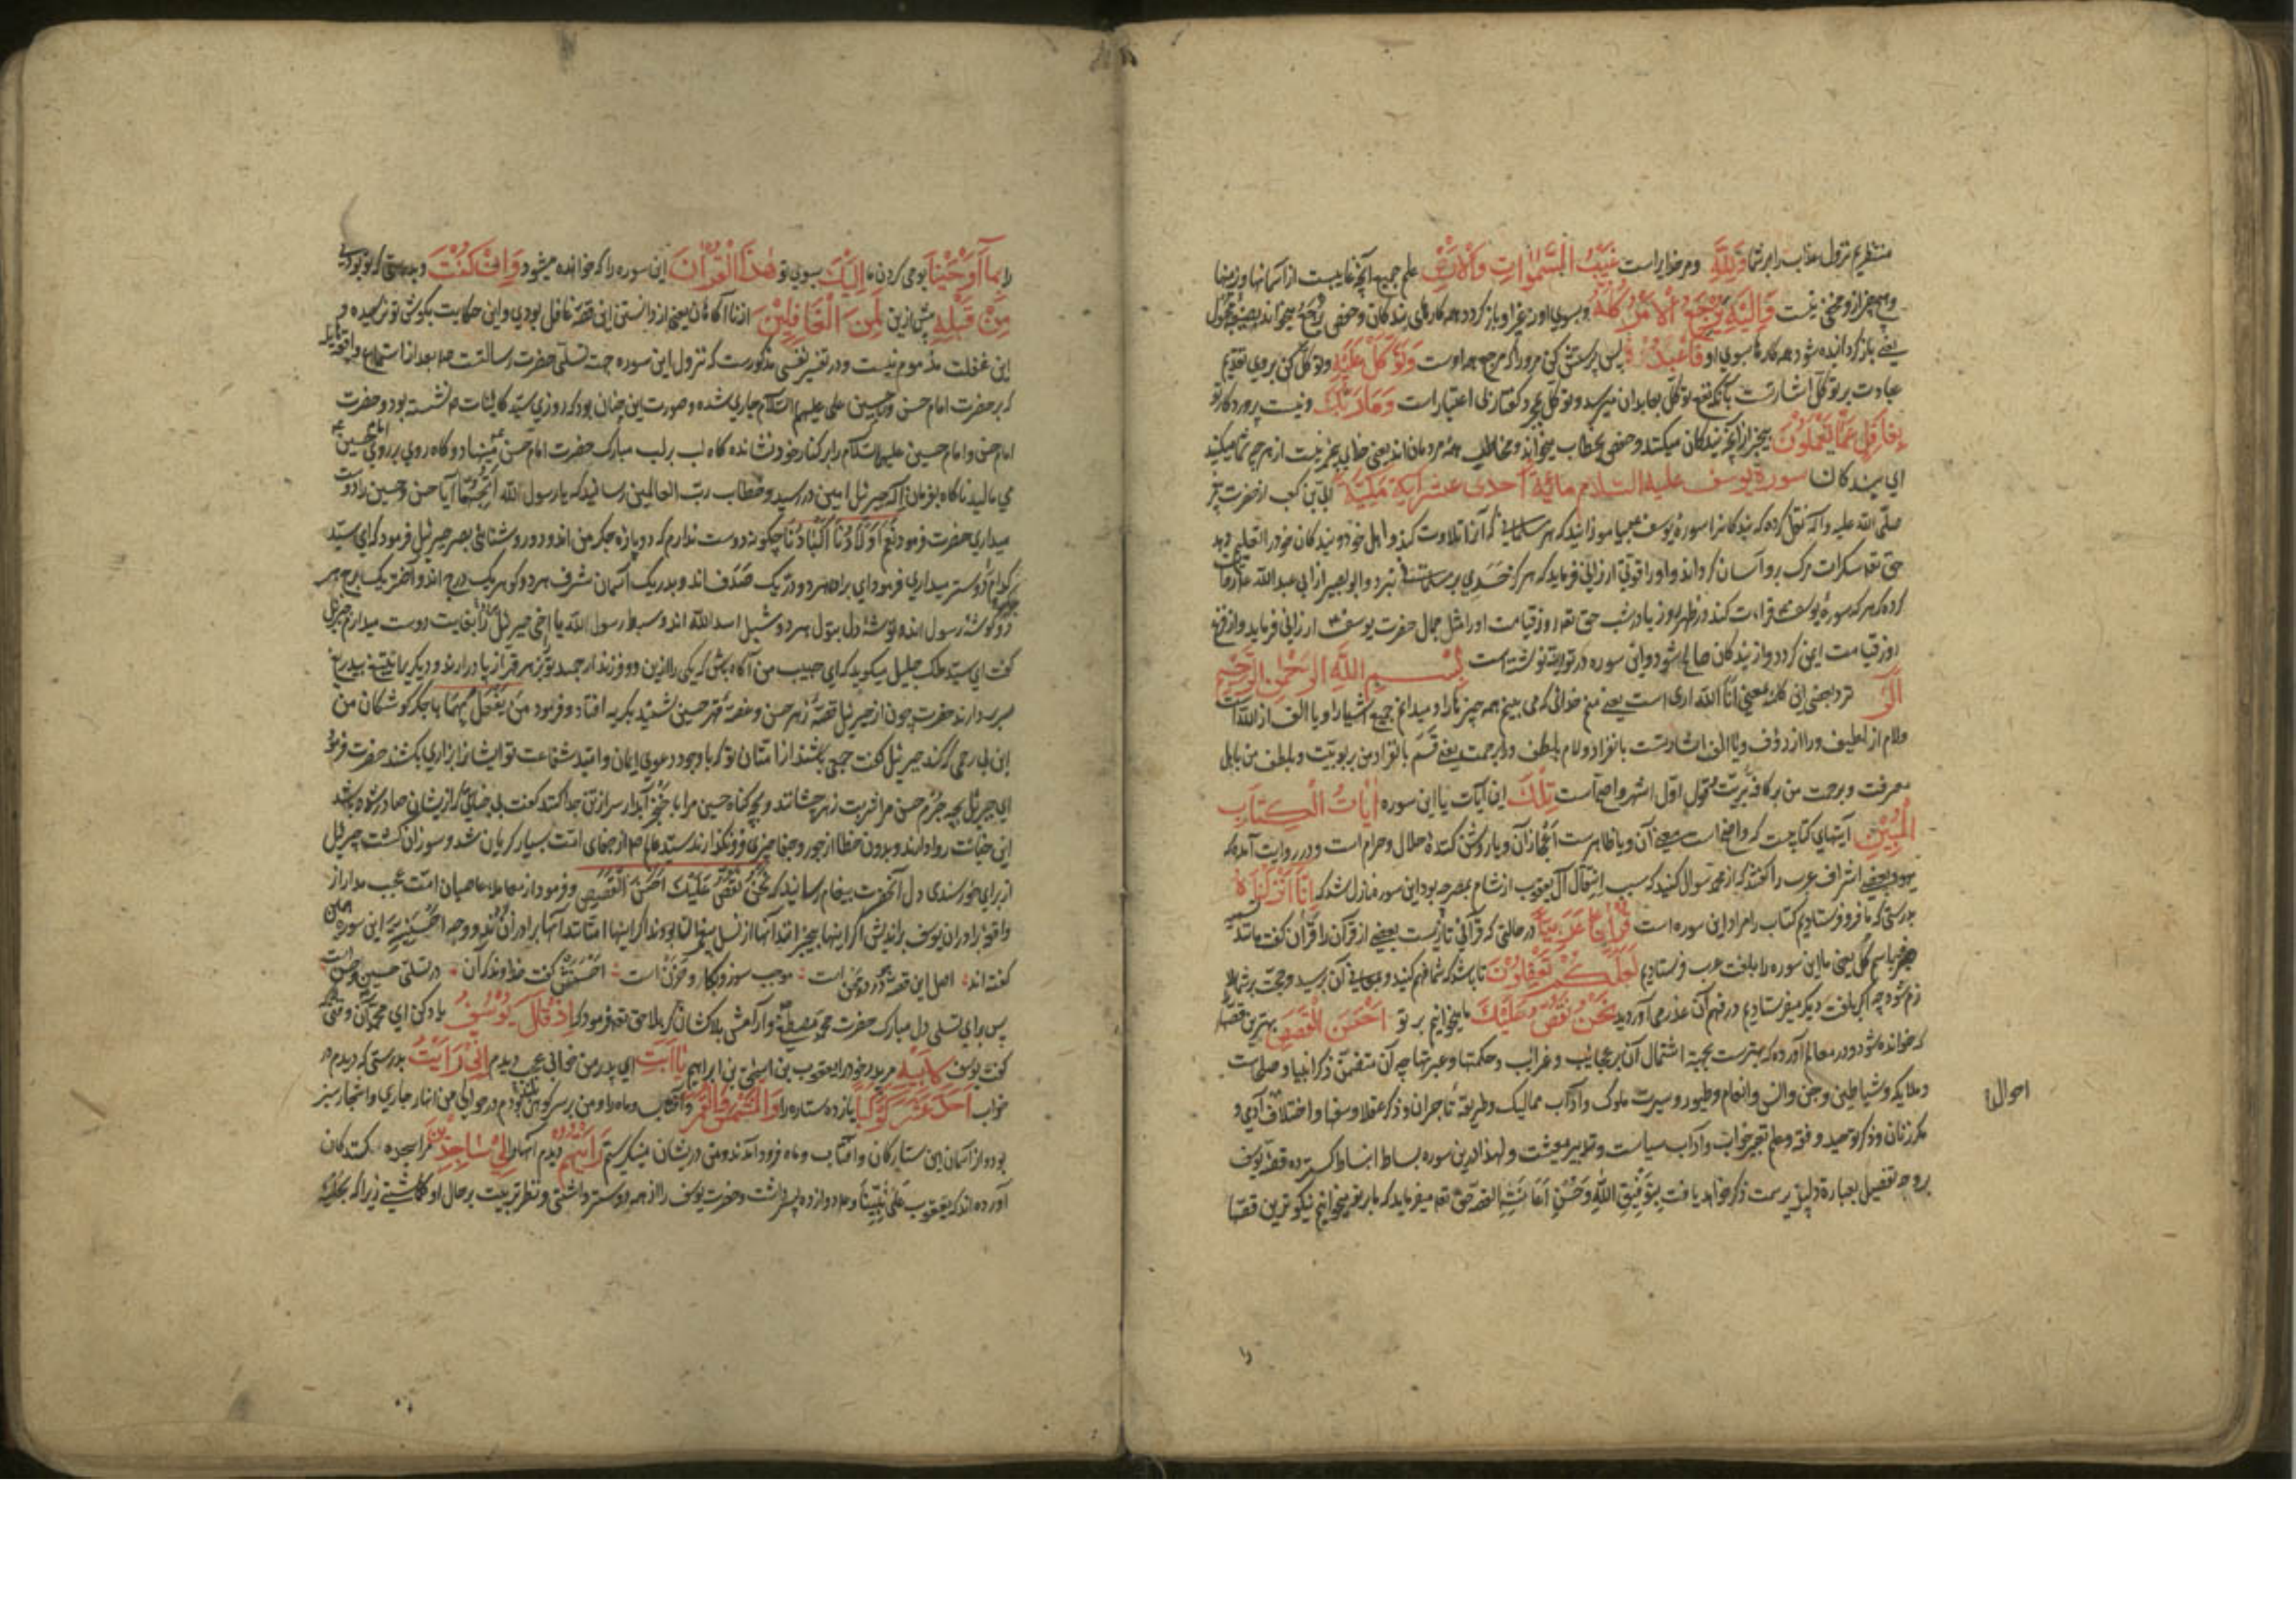 منتظریم نزول عذاب را بر شما وَلِلَّهِ و مر خدایراست غَيْبُ السَّمٰوَاتِ وَالْاَرْضِ علم جمیع آنچه غایبست از آسمانها و زمینها
و هیچ چیز ازو مخفی نیست وَاِلَيْهِ يُرْجَعُ الْاَمْرُ كُلُّهُ و بسوی او نه بغیر او باز گردد همه کارهای بندگان و حفص یُرجَعُ میخواند بصیغه مجهول
یعنی باز گردانیده شود همه کارها بسوی او فَاعْبُدْهُ پس پرستش کن مر ورا که مرجع همه اوست وَتَوَكَّلْ عَلَيْهِ و توکل کن بروی تقدیم
عبادت بر توکل اشارتست بآنکه نفع توکل بعابدان میرسد و توکل مجرد گفتار بی اعتبارات وَمَا رَبُّكَ و نیست پروردگار تو
بِغَافِلٍ عَمَّا تَعْمَلُونَ بیخبر از آنچه بندگان میکنند و حفص بخطاب میخواند و مخاطب همه مردمان اند یعنی خدای بیخبر نیست از هر چه شما میکنید
ای بندگان سورة یوسف علیه السلام مائة احدی عشر ایة مکیة ابی بن کعب از حضرت
صلی الله علیه و آله نقل کرده که بندگانرا سوره یوسف بیاموزانید که هر مسلمانی که آنرا تلاوت کند و اهل خود و بندگان خود را تعلیم دهد
حق تعالی سکرات مرگ برو آسان گرداند و او را قوتی ارزانی فرماید که هرگز حسدی بر مسلمانی نبرد و ابو بصیر از ابی عبد الله ع روایت
کرده که هر که سوره یوسف قراءت کند در هر روز یا در شب حق تعالی روز قیامت او را مثل جمال حضرت یوسف ارزانی فرماید و از فزع
روز قیامت ایمن گردد و از بندگان صالح شود و این سوره در توریة نوشته است بِسْمِ اللّٰهِ الرَّحْمٰنِ الرَّحِيمِ
الٓر نزد بعضی این کلمه بمعنی انا الله اری است یعنی منم خدائی که می بینم همه چیزها را و میدانم جمیع اشیا را و یا الف از الله است
و لام از لطیف و را از رؤف و یا الف اشارتست بانفراد و لام بلطف و را برحمت یعنی قسم بانفراد من بربوبیت و بلطف من باهل
معرفت و برحمت من بر کافه بریت و قول اول اشهر و اصح است تِلْكَ این آیات یا این سوره اٰيَاتُ الْكِتَابِ
الْمُبِينِ آیتهای کتابیست که واضح است معنی آن و یا ظاهرست اعجاز آن و یا روشن کننده حلال و حرام است و در روایت آمده که
یهود بعضی اشراف عرب را گفتند که از محمد سوال کنید که سبب انتقال آل یعقوب از شام بمصر چه بود این سوره نازل شد که اِنَّا اَنْزَلْنَاهُ
بدرستی که ما فرو فرستادیم کتاب را مراد این سوره است قُرْاٰنًا عَرَبِيًّا در حالتی که قرآنی تازیست بعضی از قرآن را قرآن گفت مانند تسمیه
جزء باسم کل یعنی ما این سوره را بلغت عرب فرستادیم لَعَلَّكُمْ تَعْقِلُونَ تا باشد که شما فهم کنید و معانی آن برسید و حجت بر شما
لازم شود چه اگر بلغت دیگر میفرستادیم در فهم آن عذر می آوردید نَحْنُ نَقُصُّ عَلَيْكَ ما میخوانیم بر تو اَحْسَنَ الْقَصَصِ بهترین قصها
که خوانده شود و در معالم آورده که بهترست بجهة اشتمال آن بر عجایب و غرایب و حکمتها و عبرتها چه آن متضمن ذکر انبیا و صلحاست
و ملایکه و شیاطین و جن و انس و انعام و طیور و سیرت ملوک و آداب ممالیک و طریقه تاجران و ذکر عقلا و سفها و اختلاف آدمی و
مکر زنان و ذکر توحید و فقه و علم تعبیر خواب و آداب سیاست و تدبیر معیشت و لهذا در این سوره بساط انبساط گسترده قصه یوسف
بر وجه تفصیل بعباره دلپذیر سمت ذکر خواهد یافت بِتَوْفِيقِ اللّٰهِ وَحُسْنِ اِعَانَتِهِ القصه حق تعالی میفرماید که ما بر تو میخوانیم نیکوترین قصها
احوال
را بِمَا اَوْحَيْنَا بوحی کردن ما اِلَيْكَ بسوی تو هٰذَا الْقُرْاٰنَ این سوره را که خوانده میشود وَاِنْ كُنْتَ و بدرستی که تو بودی
مِنْ قَبْلِهِ پیش ازین لَمِنَ الْغَافِلِينَ از ناآگاهان یعنی از دانستن این قصه غافل بودی و این حکایت بگوش تو نرسیده و
این غفلت مذموم نیست و در تفسیر نفسی مذکورست که نزول این سوره جهت تسلی حضرت رسالتست ص بعد از استماع واقعه هایله
که بر حضرت امام حسن و حسین علی علیهم السلام جاری شده و صورت این چنان بود که روزی سید کاینات ص نشسته بود و حضرت
امام حسن و امام حسین علیهما السلام را بر کنار خود نشانده گاه لب بر لب مبارک حضرت امام حسن مینهاد و گاه روی بر روی امام حسین
می مالید ناگاه بفرمان اله جبرئیل امین در رسید و خطاب رب العالمین رسانید که یا رسول الله اَتُحِبُّهُمَا آیا حسن و حسین را دوست
میداری حضرت فرمود نَعَمْ اَوْلَادُنَا اَكْبَادُنَا چگونه دوست ندارم که دو پاره جگر من اند و دو روشنائی بصر جبرئیل فرمود که ای سید
کدام دوستر میداری فرمود ای برادر هر دو در یک صدف اند و بدر یک آسمان شرف هر دو گوهر یک درج اند و اختر یک برج هر
دو گوشه رسول اند و توشه دل بتول هر دو شبل اسد الله اند و سبط رسول الله یا اخی جبرئیل را بغایت دوست میدارم جبرئیل
گفت ای سید ملک جلیل میگوید که ای حبیب من آگاه باش که یکی را ازین دو فرزند ارجمند تو بزهر قهر از پا درآرند و دیگری را بتیغ بیدریغ
سر بردارند حضرت چون از جبرئیل قصه زهر حسن و غصه قهر حسین شنید بگریه افتاد و فرمود مَنْ يَفْعَلُ بِهِمَا با جگر گوشگان من
این بی رحمی که کند جبرئیل گفت جمعی باشند از امتان تو که با وجود دعوی ایمان و امید شفاعت تو ایشانرا بزاری بکشند حضرت فرمود
ای جبرئیل بچه جرم حسن مرا شربت زهر چشانند و بچه گناه حسین مرا با خنجر آبدار سر از تن جدا کنند گفت بی جنایتی که از ایشان صادر شده باشد
این جفا روا دارند و بدون خطا از جور و جفا چیزی فرو نگذارند سید عالم ص از جفای امت بسیار گریان شد و سوزان گشت جبرئیل
از برای خورسندی دل آنحضرت پیغام رسانید که نَحْنُ نَقُصُّ عَلَيْكَ اَحْسَنَ الْقَصَصِ و فرمود از معامله عاصیان امت عجب مدار از
واقعه برادران یوسف براندیش اگر اینها بیخبرانند آنها از نسل پیغمبران بودند اگر اینها امتانند آنها برادران اند و وجه اَحْسَنِیَّت این سوره
گفته اند اصل این قصه درد و محن است موجب سوز و بکا و حزن است اَحْسَنَش گفت خداوند زآن در تسلی حسین و حسن است
پس برای تسلی دل مبارک حضرت محمد مصطفی و آرامش بلاکشان کربلا حق تعالی فرمود که اِذْ قَالَ يُوسُفُ یاد کن ای محمد آن وقتی که
گفت یوسف لِاَبِيهِ مر پدر خود را یعقوب بن اسحق بن ابراهیم يَا اَبَتِ ای پدر من خوابی عجب دیدم اِنِّي رَاَيْتُ بدرستی که دیدم در
خواب اَحَدَ عَشَرَ كَوْكَبًا یازده ستاره را وَالشَّمْسَ وَالْقَمَرَ و آفتاب و ماه را و من بر سر کوهی بودم در حوالی من انهار جاری و اشجار سبز
بود و از آسمان این ستارگان و آفتاب و ماه فرود آمدند و من در یشان مینگرستم رَاَيْتُهُمْ دیدم آنها را لِي سَاجِدِينَ مرا سجده کنندگان
آورده اند که یعقوب عَلٰی نَبِیِّنَا و علیه دوازده پسر داشت و حضرت یوسف را از همه دوستر داشتی و نظر تربیت بر حال او گماشتی زیرا که بحلیه